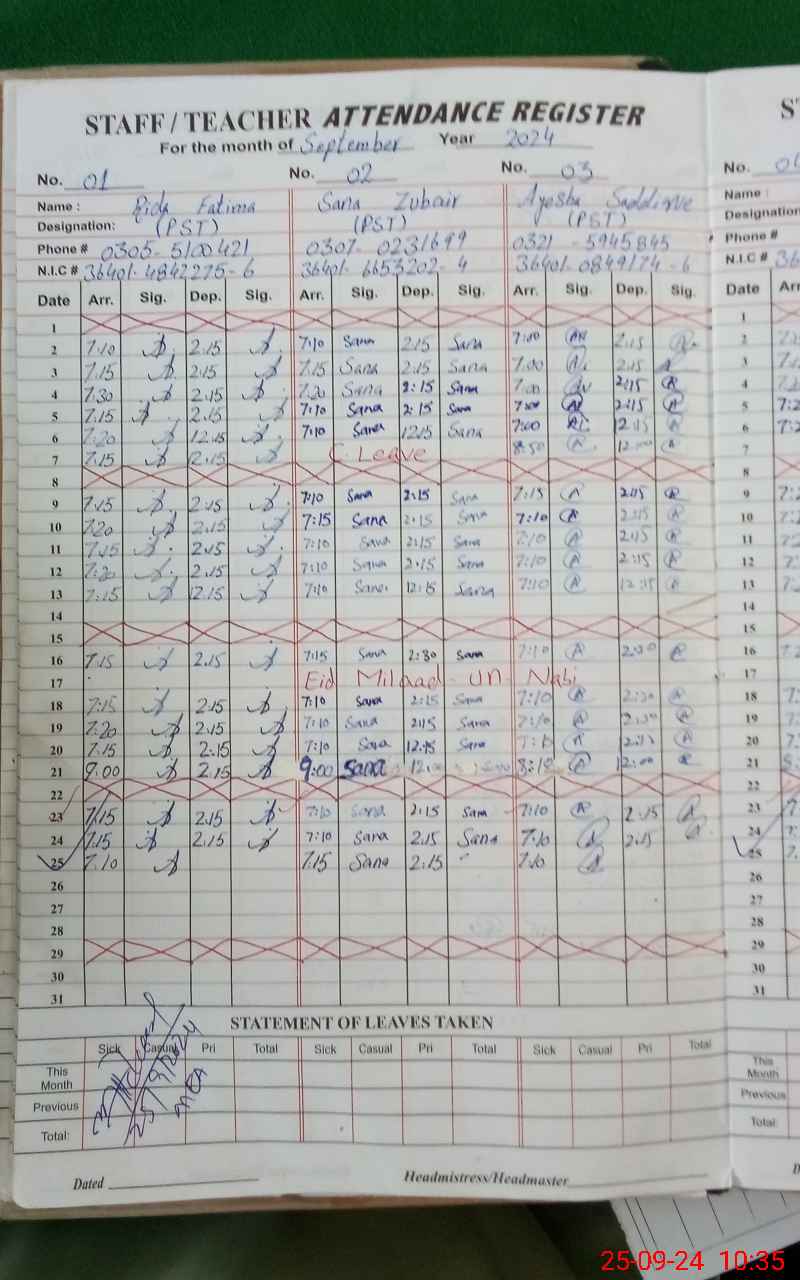 STAFF / TEACHER ATTENDANCE REGISTER
For the month of September Year 2024
No. 01 No. 02 No. 03 No.
Name : Rida Fatima Sana Zubair Ayesha Name :
Designation: (PST) (PST) (PST) Designation
Phone # 0305-5100421 0307-0231699 0321-5945845 Phone #
N.I.C # 36401-4842275-6 36401-6653202-4 36401-0849174-6 N.I.C # 36
Date Arr. Sig. Dep. Sig. Arr. Sig. Dep. Sig. Arr. Sig. Dep. Sig. Date Arr
1 1
2 7.10 2.15 7:10 Sana 2:15 Sana 2:15 2
3 7.15 2.15 7.15 Sana 2:15 Sana 7.00 2:15 3
4 7.30 2.15 7.20 Sana 2:15 Sana 7:00 2:15 4
5 7.15 2.15 7:10 Sana 2:15 Sana 7:00 2:15 5
6 7:20 12.15 7:10 Sana 12:15 Sana 7:00 12:15 6
7 7.15 2.15 C. Leave 8:50 12:00 7
8 8
9 7.15 2.15 7:10 Sana 2:15 Sana 7:15 2:15 9
10 7.20 2.15 7:15 Sana 2:15 Sana 7:10 2:15 10
11 7.15 2.15 7:10 Sana 2:15 Sana 7:10 2:15 11
12 7:20 2.15 7:10 Sana 2:15 Sana 7:10 2:15 12
13 7:15 12.15 7:10 Sana 12:15 Sana 7:10 12:15 13
14 14
15 15
16 7.15 2.15 7:15 Sana 2:30 Sana 7:10 2:30 16
17 Eid Milaad-un-Nabi 17
18 7:15 2.15 7:10 Sana 2:15 Sana 7:10 2:30 18
19 7.20 2.15 7:10 Sana 2:15 Sana 7:10 2:30 19
20 7.15 2:15 7:10 Sana 12:15 Sana 7:10 20
21 9.00 2.15 9:00 Sana 8:10 12:00 21
22 22
23 7.15 2.15 7:10 Sana 2:15 Sana 7:10 2:15 23
24 7.15 2.15 7:10 Sana 2.15 Sana 7:10 2:15 24
25 7.10 7.15 Sana 2:15 7:10 25
26 26
27 27
28 28
29 29
30 30
31 31
STATEMENT OF LEAVES TAKEN
Sick Casual Pri Total Sick Casual Pri Total Sick Casual Pri Total
This Month This Month
Previous Previous
Total: Total:
25/9/2024
MEA
Dated Headmistress/Headmaster
25-09-24 10:35